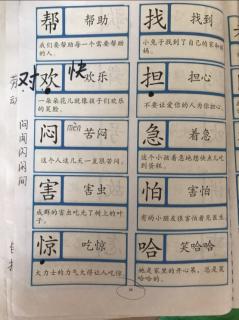 帮 帮助
我们要帮助每一个需要帮助的人。
找 找到
小兔子找到了自己的家和
对 快
欢 欢乐
一朵朵花儿就像孩子们欢乐的笑脸。
担 担心
不要让爱你的人为你担心。
劳动
闷 mèn 苦闷
这个人这几天一直很苦闷。
急 着急
这个小孩着急地想快点儿吃到蛋糕。
问闻闪闲间
害 害虫
成群的害虫吃光了树上的叶子。
怕 害怕
有的小朋友很害怕看见医生。
惊 吃惊
大力士的力气大得让人吃惊。
哈 笑哈哈
她是家里的开心果，总是笑哈哈的。